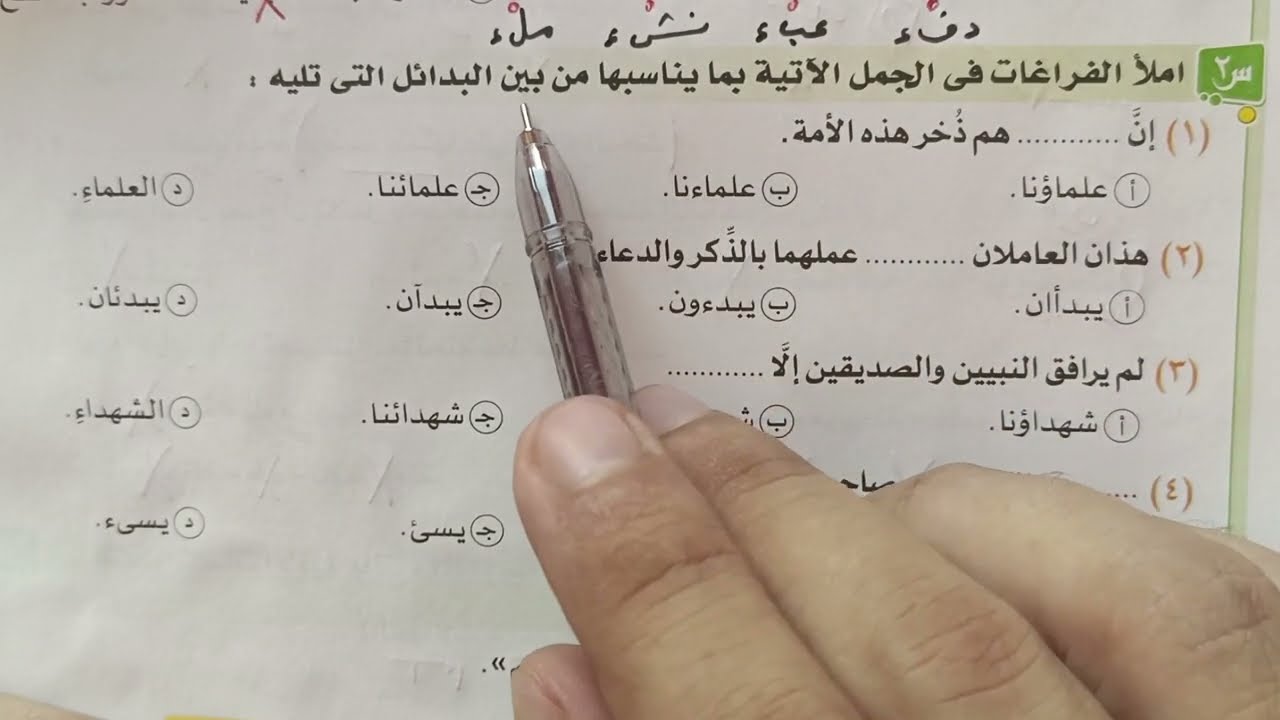 دفْء عبْء نشْء ملْء
س٢ املأ الفراغات فى الجمل الآتية بما يناسبها من بين البدائل التى تليه :
(١) إنَّ ............ هم ذُخر هذه الأمة.
أ علماؤنا. ب علماءنا. جـ علمائنا. د العلماءِ.
(٢) هذان العاملان ............ عملهما بالذِّكر والدعاء
أ يبدأان. ب يبدءون. جـ يبدآن. د يبدئان.
(٣) لم يرافق النبيين والصديقين إلَّا ............
أ شهداؤنا. ب جـ شهدائنا. د الشهداءِ.
(٤) ....
جـ يسئ. د يسىء.